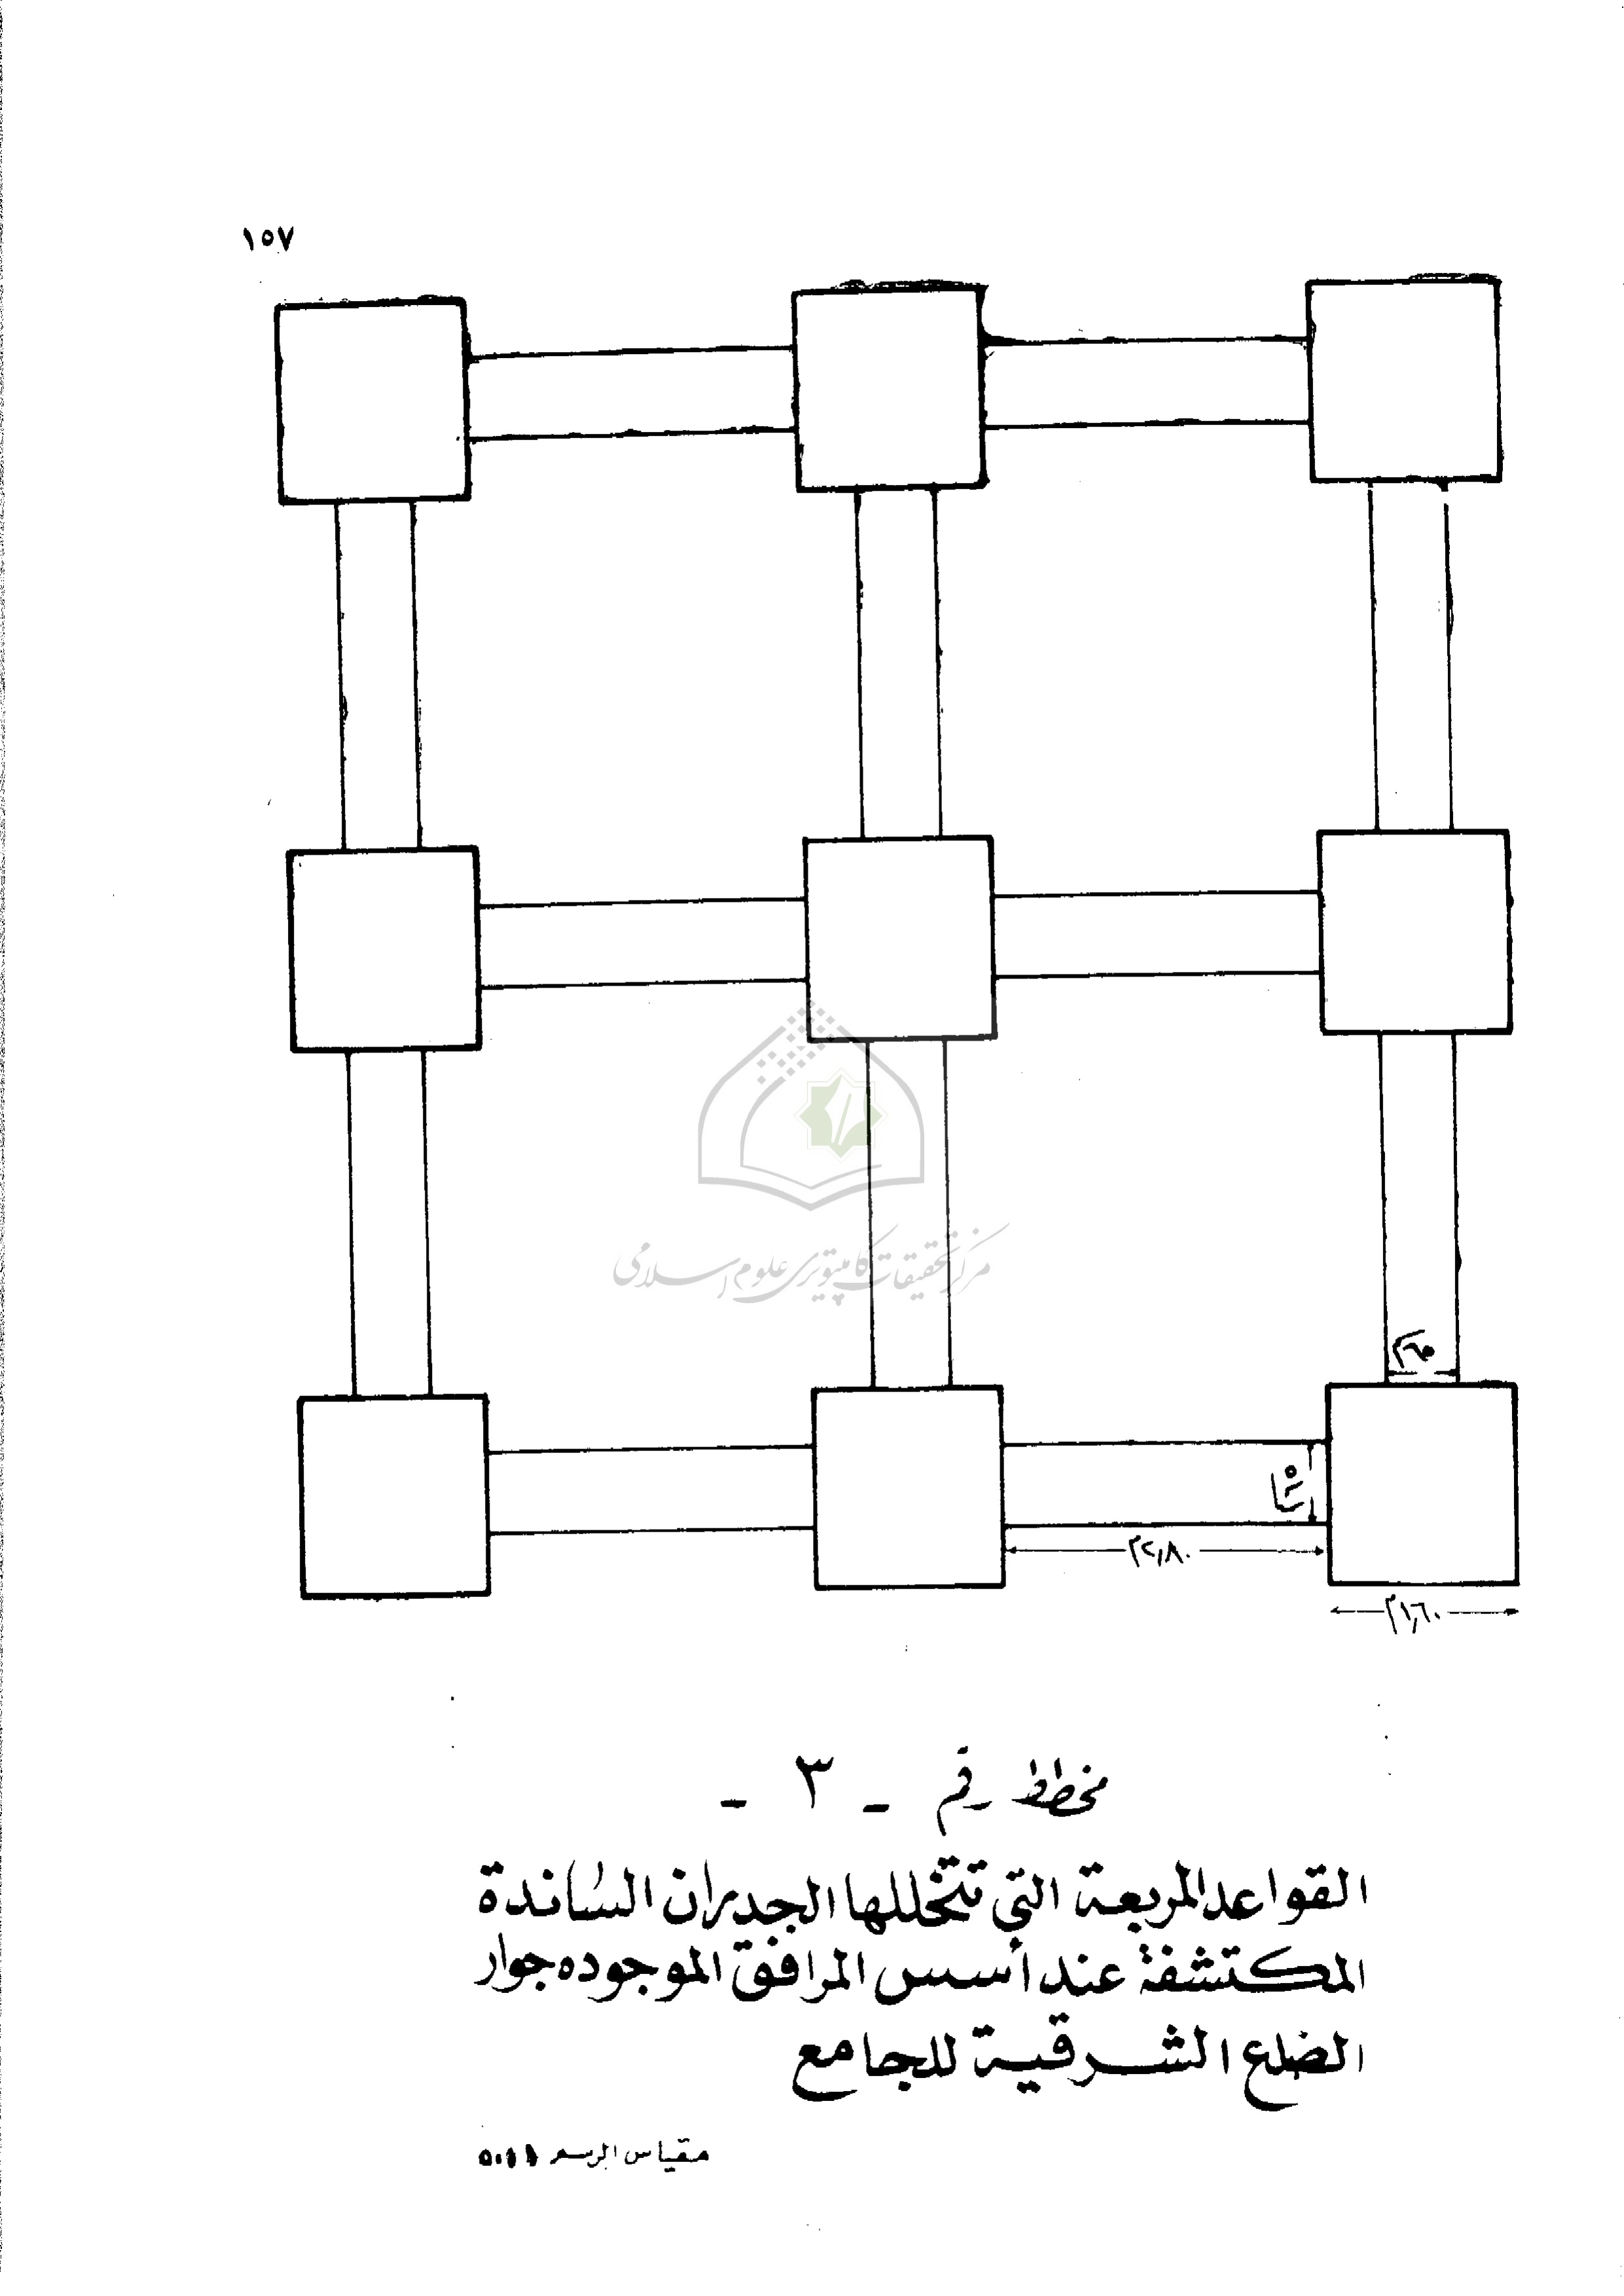 ١٥٧
مركز تحقيقات كامپيوترى علوم اسلامى
م٦٥
م٢,٨٠
م١,٦٠
مخطط رقم - ٣ -
القواعد المربعة التي تتخللها الجدران الساندة
المكتشفة عند أسس المرافق الموجوده جوار
الضلع الشرقية للجامع
مقياس الرسم